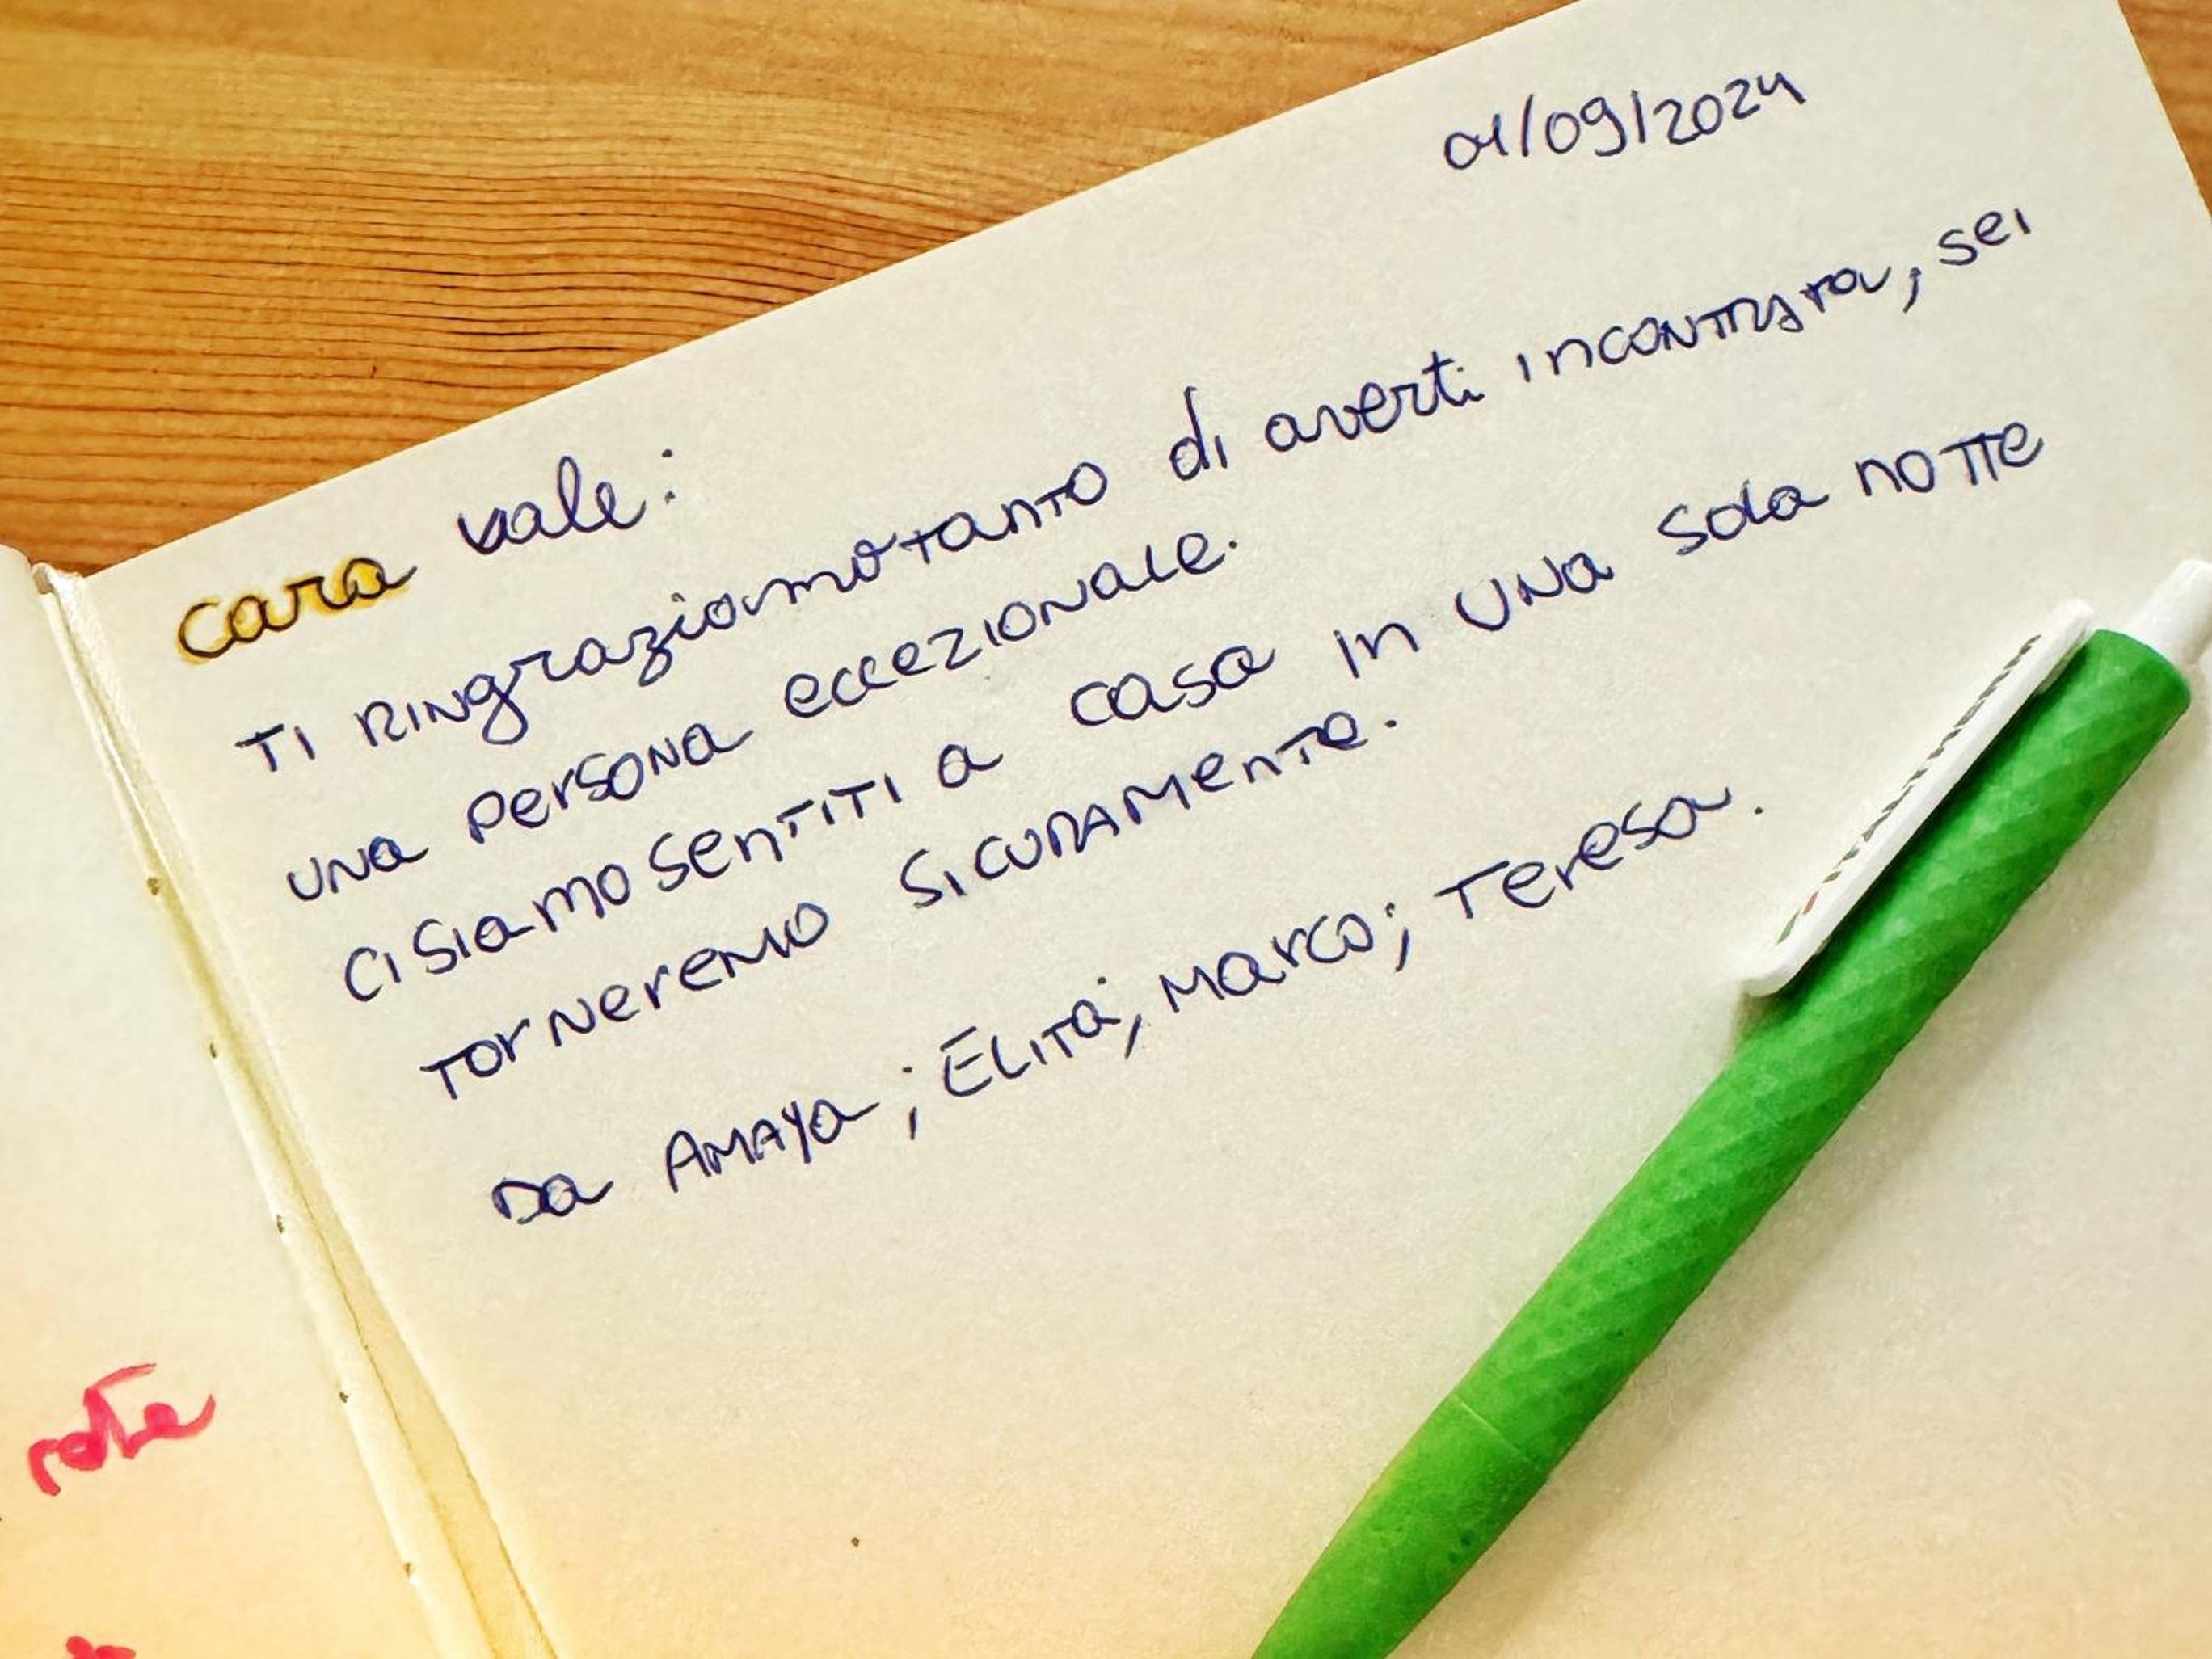 01/09/2024
cara vale:
TI RINgraziamo tanTO di averti inconTRATA, sei
UNa persona eccezionale.
Ci siamo senTITI a casa in UNa sola noTTe
TorNeremo sicuramenTe.
Da Amaya; ELITA; Marco; Teresa.